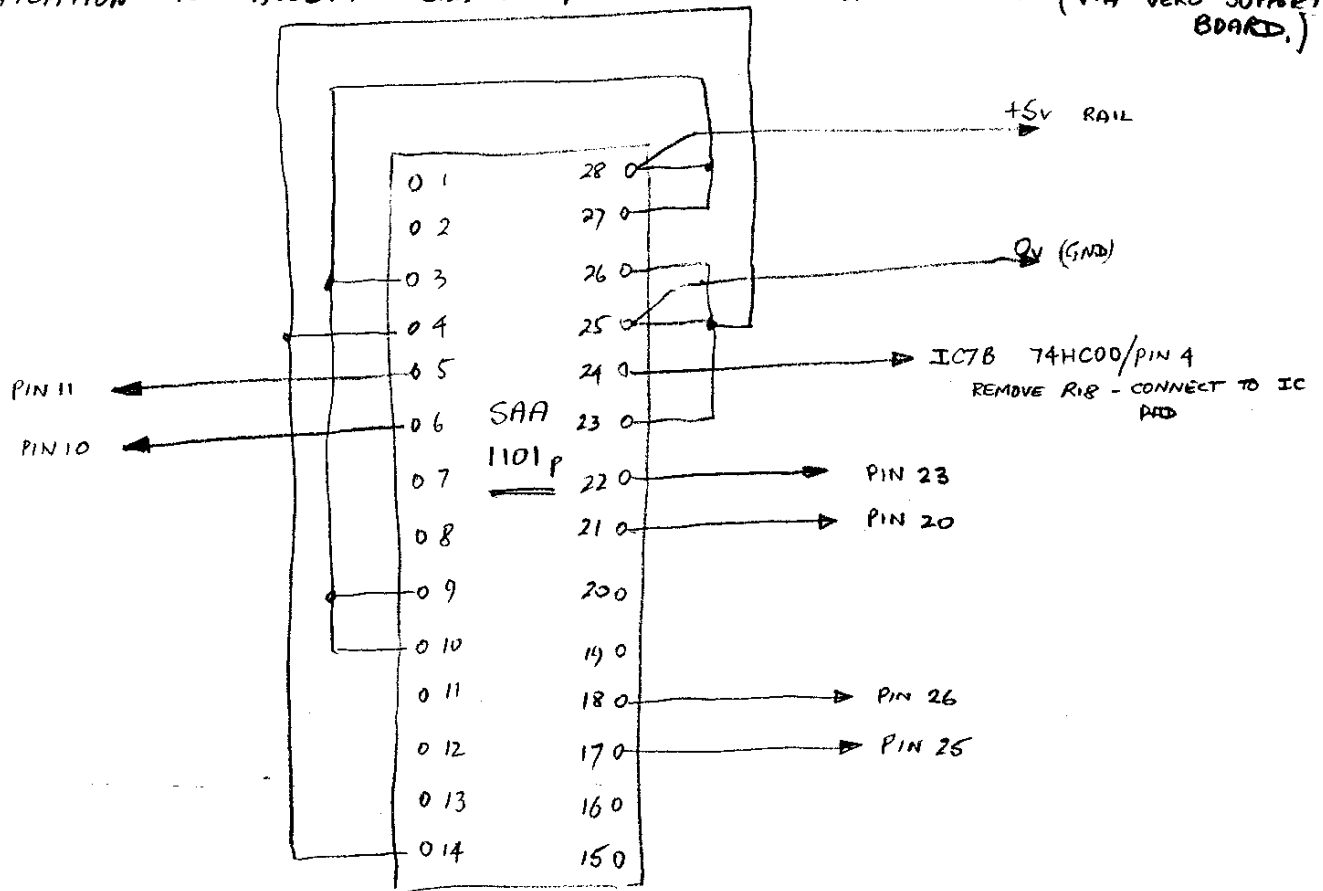 (VIA VERO SUPPORT
BOARD.)
+5V RAIL
0V (GND)
IC7B 74HC00/PIN 4
REMOVE R18 - CONNECT TO IC
PAD
PIN 11
PIN 10
PIN 23
PIN 20
PIN 26
PIN 25
SAA
1101P
1
2
3
4
5
6
7
8
9
10
11
12
13
14
28
27
26
25
24
23
22
21
20
19
18
17
16
15